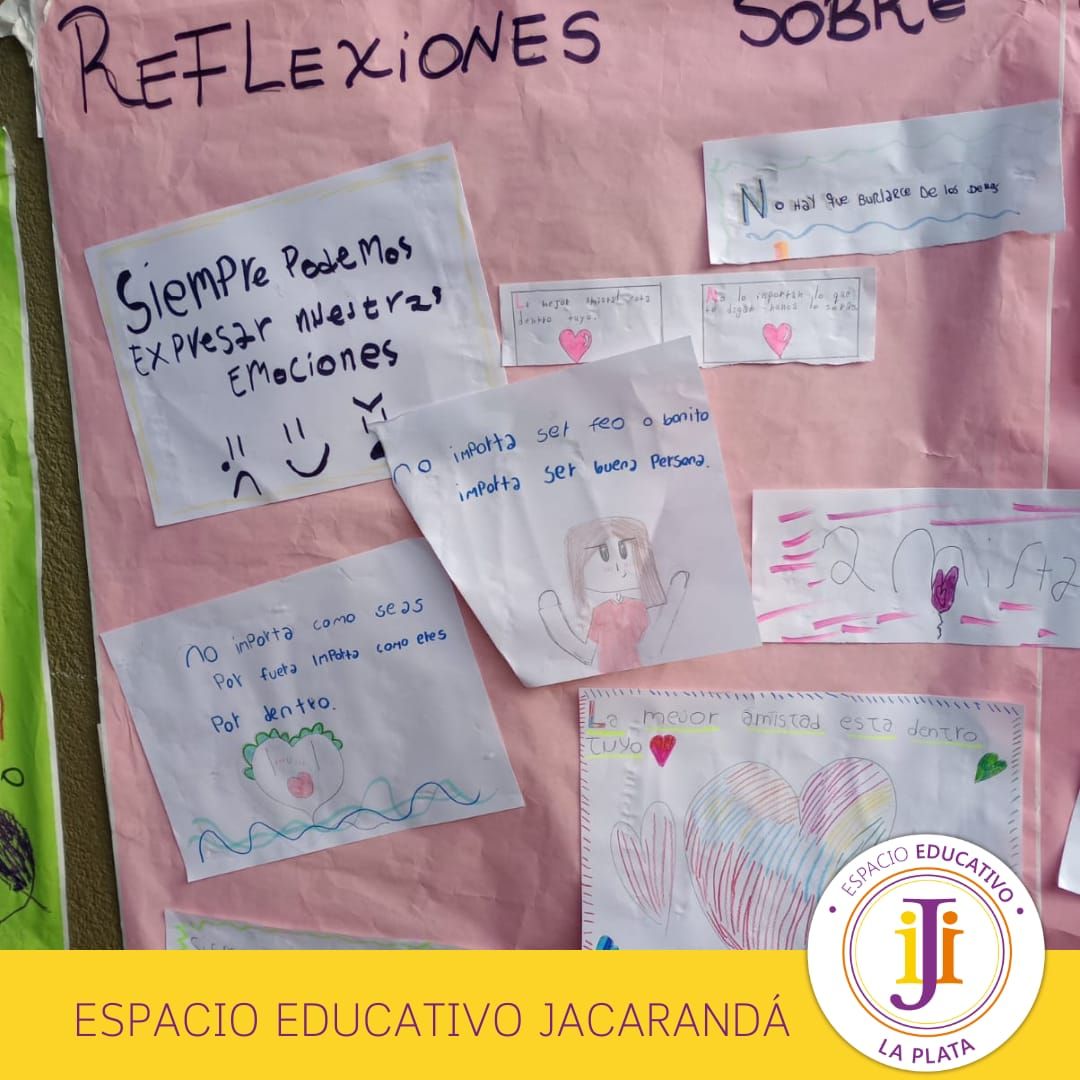 REFLEXIONES SOBRE
Siempre Podemos
Expresar nuestras
Emociones
No HAY que BURLARCE De los Demas
La mejor amistad esta
dentro tuyo.
No le importan lo que
te digan nunca lo
No importa ser feo o bonito
importa ser buena Persona.
No importa como seas
Por fuera importa como eres
Por dentro.
amista
La mejor amistad esta dentro
tuyo
Siem
ESPACIO EDUCATIVO JACARANDÁ
ESPACIO EDUCATIVO
iJi
LA PLATA